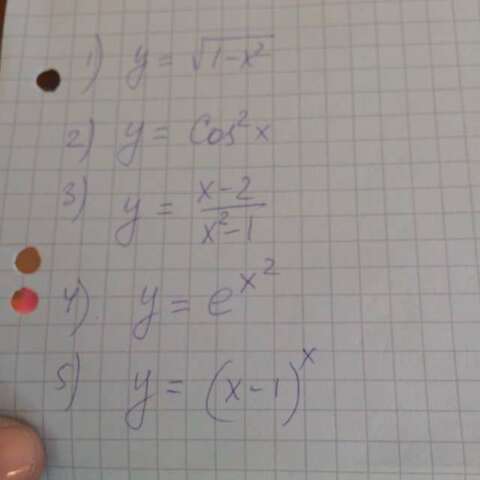 1) y = √(1-x²)
2) y = Cos²x
3) y = (x-2)/(x²-1)
4) y = e^(x²)
5) y = (x-1)^x